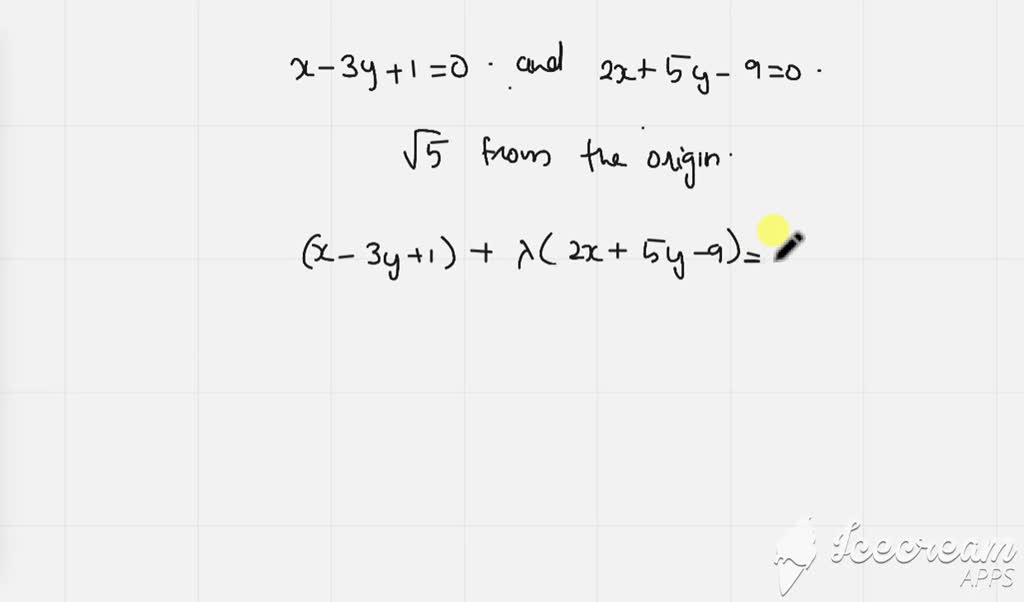 x - 3y + 1 = 0 . and 2x + 5y - 9 = 0 .
√5 from the origin.
(x - 3y + 1) + λ( 2x + 5y - 9) =
Icecream
APPS